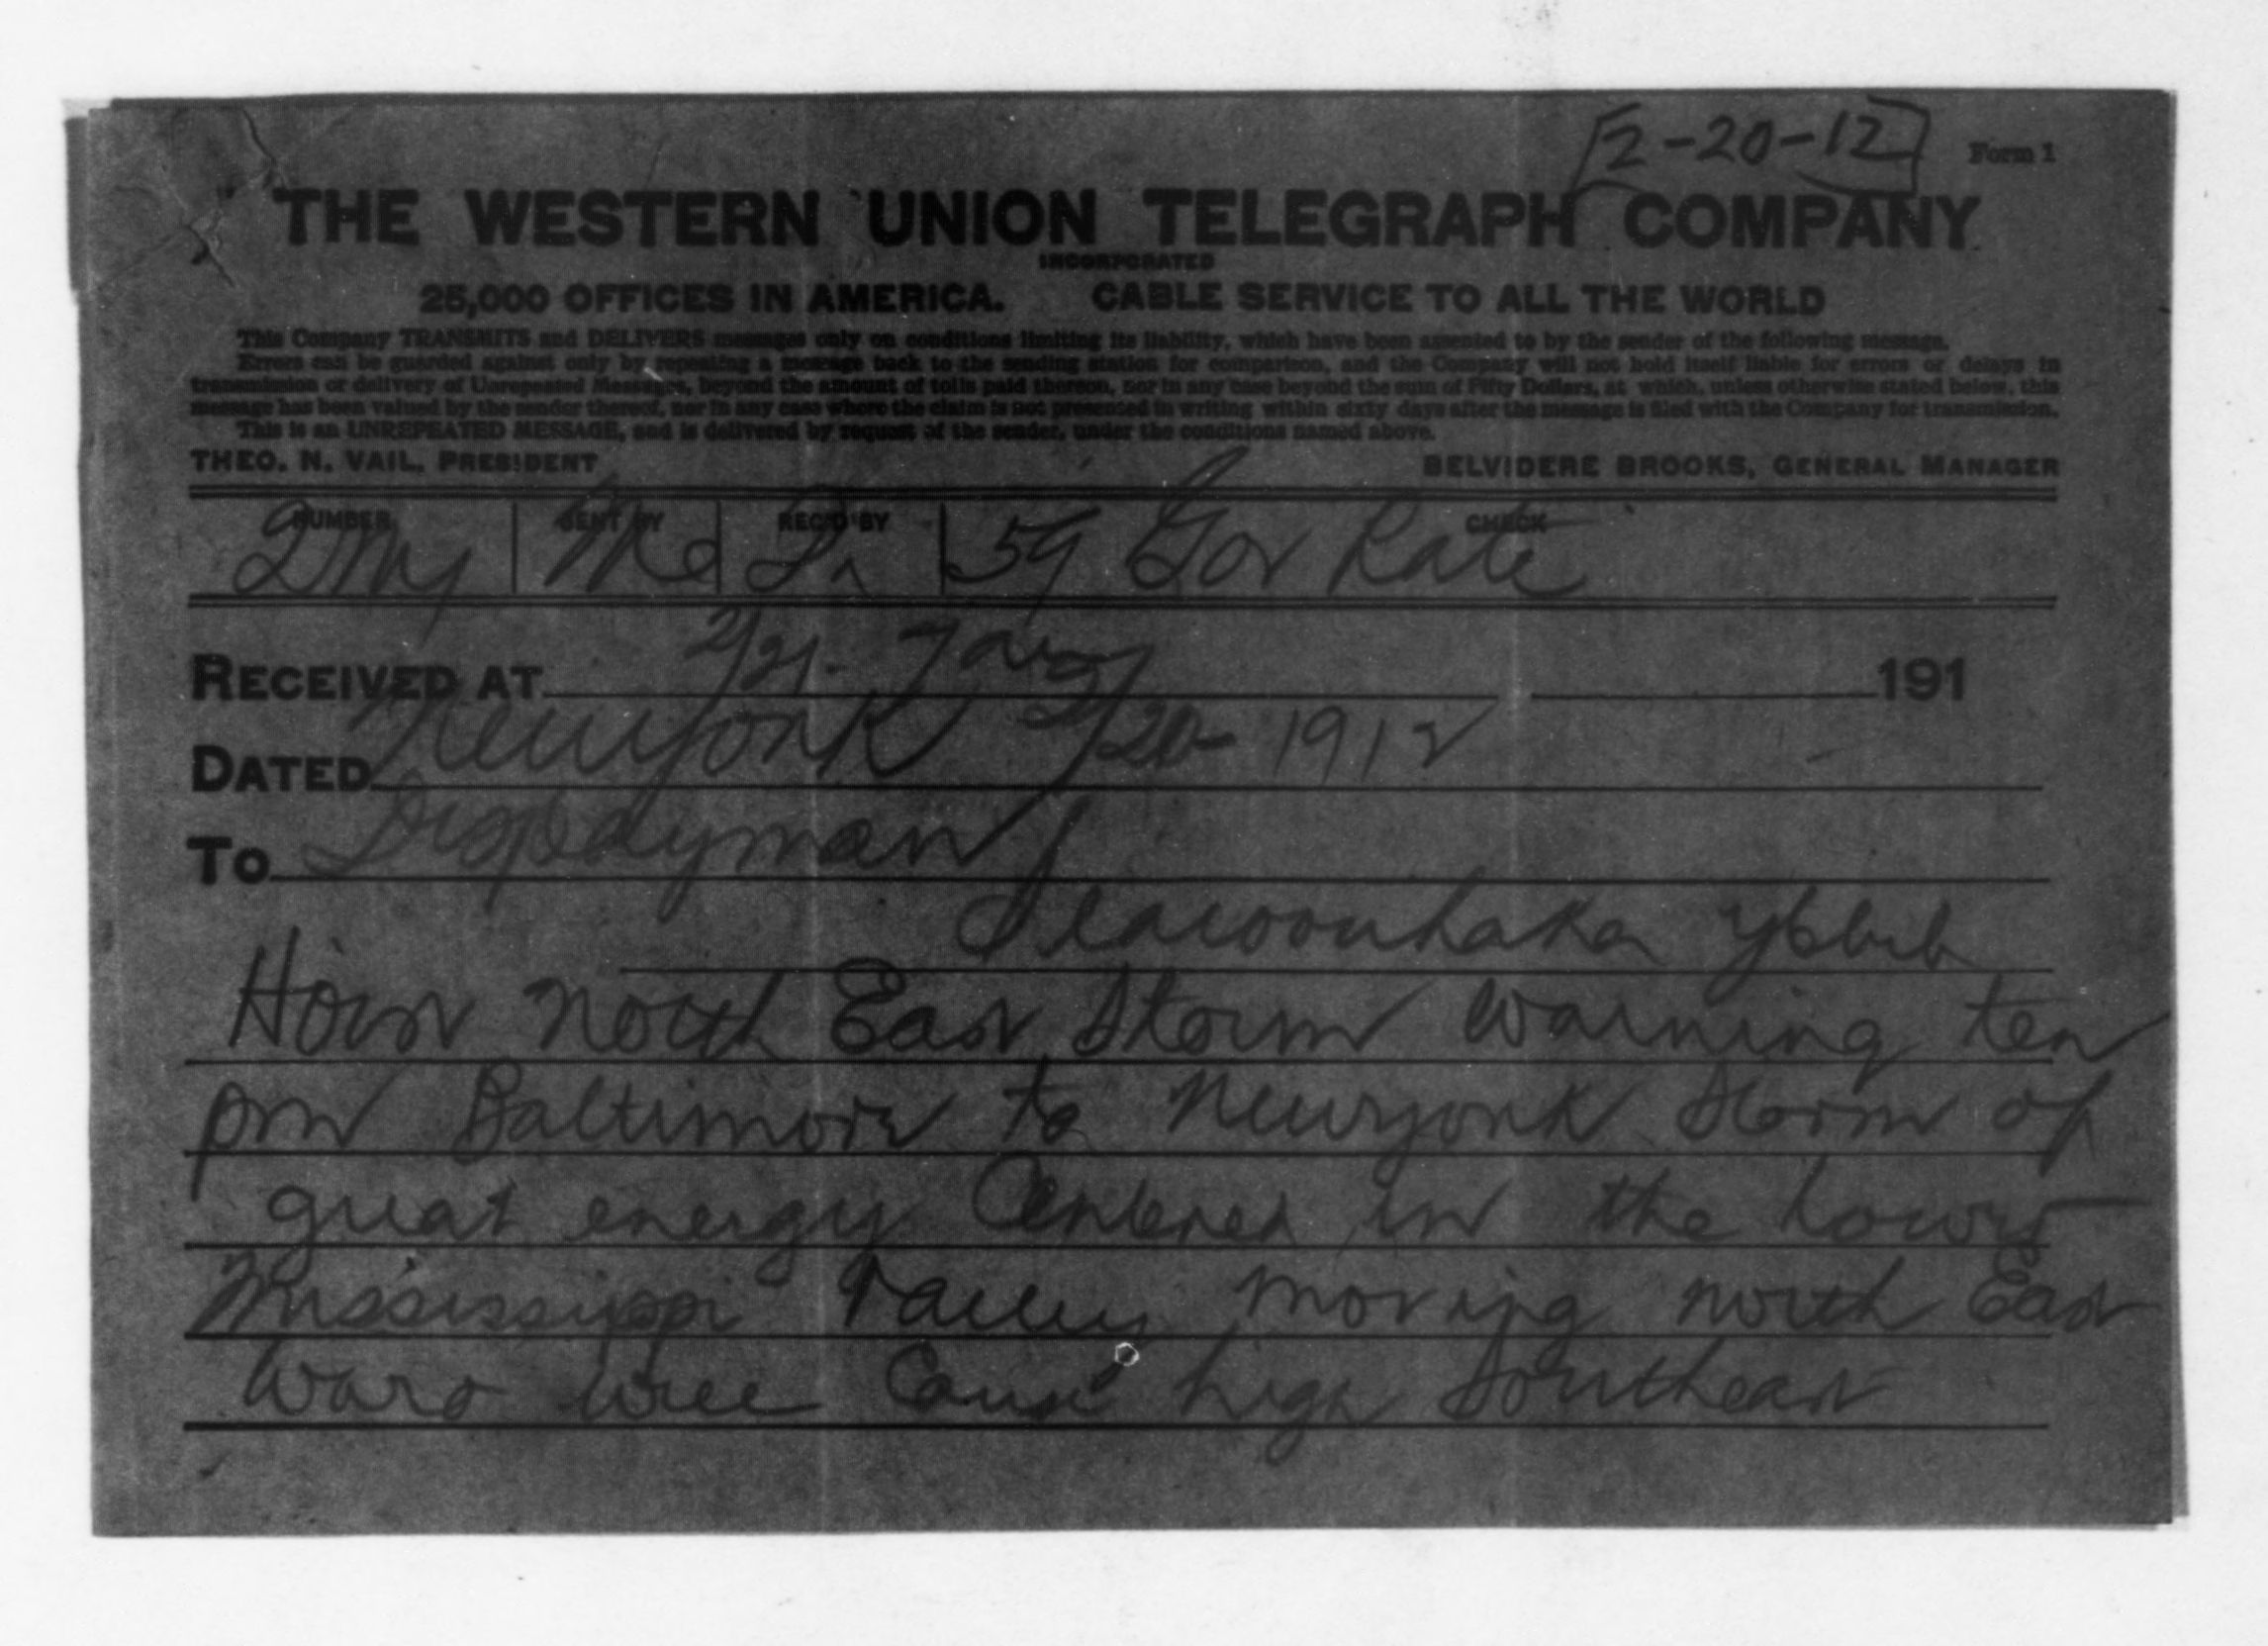 [2-20-12] Form 1
THE WESTERN UNION TELEGRAPH COMPANY
INCORPORATED
25,000 OFFICES IN AMERICA. CABLE SERVICE TO ALL THE WORLD
This Company TRANSMITS and DELIVERS messages only on conditions limiting its liability, which have been assented to by the sender of the following message.
Errors can be guarded against only by repeating a message back to the sending station for comparison, and the Company will not hold itself liable for errors or delays in
transmission or delivery of Unrepeated Messages, beyond the amount of tolls paid thereon, nor in any case beyond the sum of Fifty Dollars, at which, unless otherwise stated below, this
message has been valued by the sender thereof, nor in any case where the claim is not presented in writing within sixty days after the message is filed with the Company for transmission.
This is an UNREPEATED MESSAGE, and is delivered by request of the sender, under the conditions named above.
THEO. N. VAIL, PRESIDENT BELVIDERE BROOKS, GENERAL MANAGER
NUMBER SENT BY REC'D BY CHECK
59 Gov Rate
RECEIVED AT 191
DATED New York 2/20-1912
To Displayman
Hoist north East Storm Warning ten
pm Baltimore to Newyork Storm of
great energy Centered in the Lower
Mississippi Valley moving north East
Ward Will Cause high Southeast